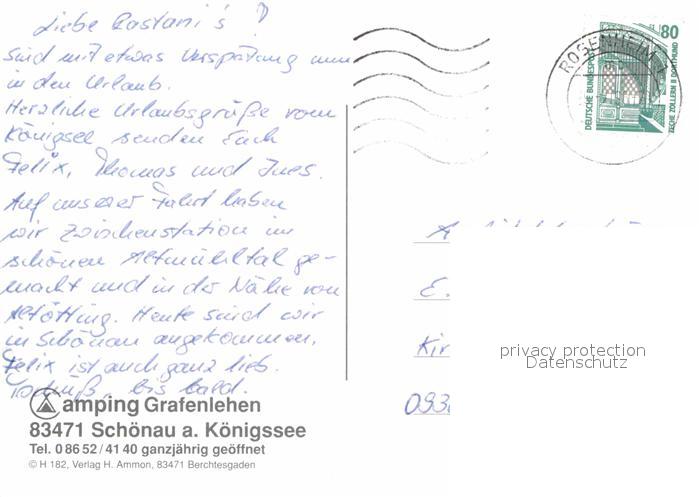 Liebe Rastani's!
Sind mit etwas Verspätung nun
in den Urlaub.
Herzliche Urlaubsgrüße vom
Königsee senden Euch
Felix, Thomas und Ines.
Auf unserer Fahrt haben
wir Zwischenstation im
schönen Altmühltal ge-
macht und in der Nähe von
Altötting. Heute sind wir
in Schönau angekommen.
Felix ist auch ganz lieb.
bis bald.
Camping Grafenlehen
83471 Schönau a. Königssee
Tel. 0 86 52 / 41 40 ganzjährig geöffnet
© H 182, Verlag H. Ammon, 83471 Berchtesgaden
ROSENHEIM
80
DEUTSCHE BUNDESPOST
ZECHE ZOLLERN II DORTMUND
E.
Kir
093
privacy protection
Datenschutz